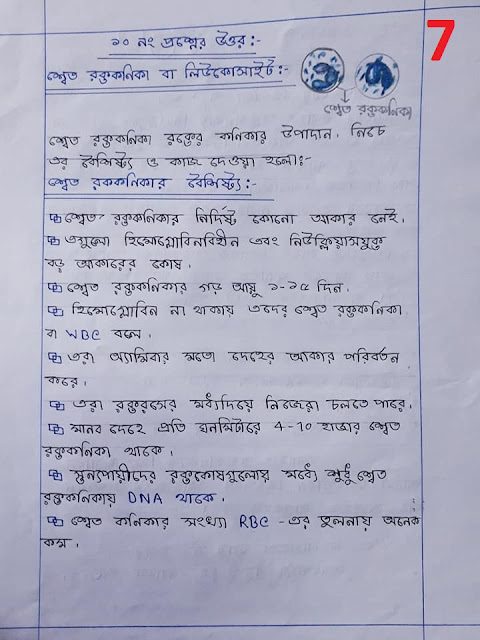 7
১০ নং প্রশ্নের উত্তর:-
শ্বেত রক্তকনিকা বা লিউকোসাইট:-
শ্বেত রক্তকনিকা
শ্বেত রক্তকনিকা রক্তের কনিকার উপাদান. নিচে
এর বৈশিষ্ট্য ও কাজ দেওয়া হলো:-
শ্বেত রক্তকনিকার বৈশিষ্ট্য:-
শ্বেত রক্তকনিকার নির্দিষ্ট কোনো আকার নেই.
এগুলো হিমোগ্লোবিনবিহীন এবং নিউক্লিয়াসযুক্ত
বড় আকারের কোষ.
শ্বেত রক্তকনিকার গড় আয়ু ১-১৫ দিন.
হিমোগ্লোবিন না থাকায় এদের শ্বেত রক্তকনিকা
বা WBC বলে.
এরা অ্যামিবার মতো দেহের আকার পরিবর্তন
করে.
এরা রক্তরসের মধ্যদিয়ে নিজেরা চলতে পারে.
মানব দেহে প্রতি ঘনমিটারে 4-10 হাজার শ্বেত
রক্তকনিকা থাকে.
স্তন্যপায়ীদের রক্তকোষগুলোর মধ্যে শুধু শ্বেত
রক্তকনিকায় DNA থাকে.
শ্বেত কনিকার সংখ্যা RBC -এর তুলনায় অনেক
কম.